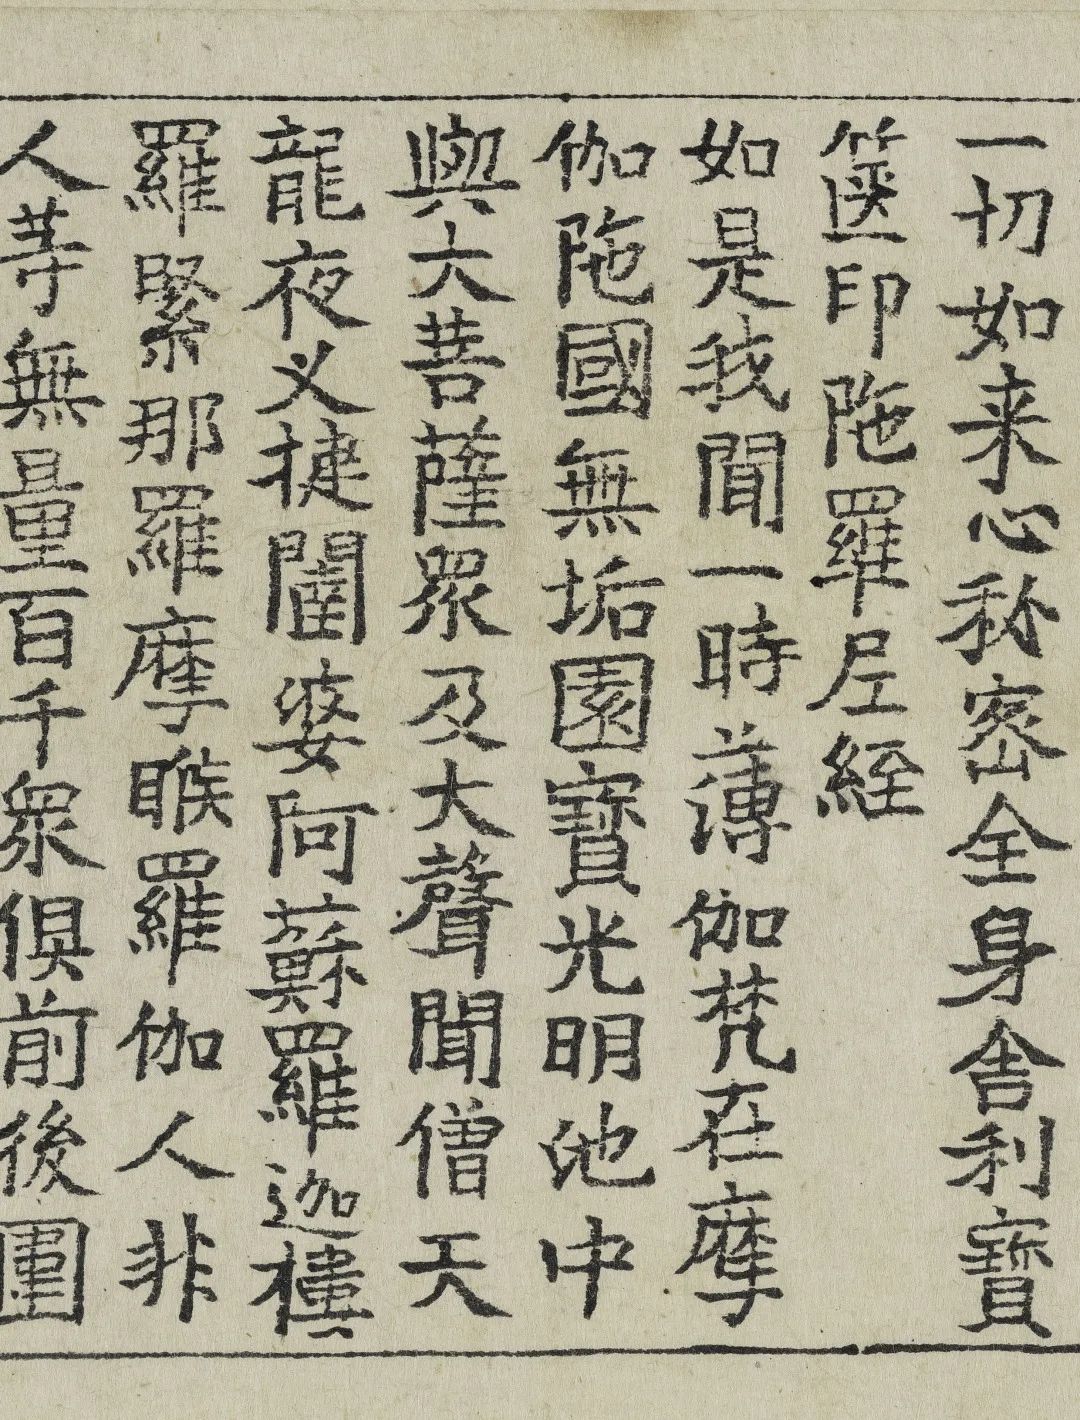 一切如来心秘密全身舎利寶
篋印陁羅尼經
如是我聞一時薄伽梵在摩
伽陁國無垢園寶光明池中
與大菩薩衆及大聲聞僧天
龍夜叉揵闥婆阿蘇羅迦樓
羅緊那羅摩睺羅伽人非
人等無量百千衆俱前後圍